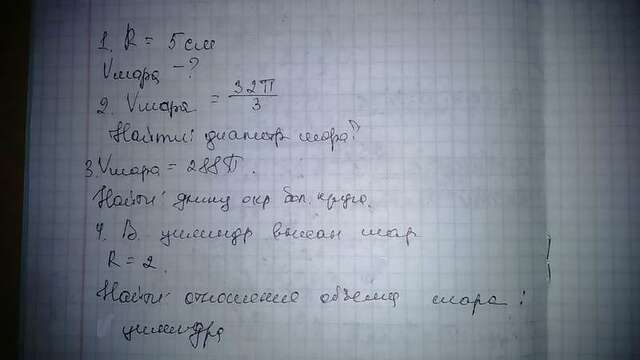 1. R = 5 см
Vшара - ?
2. Vшара = 32π/3
Найти: диаметр шара?
3. Vшара = 288π.
Найти: длину окр бол. круга.
4. В цилиндр вписан шар
R = 2.
Найти отношение объема шара :
цилиндра